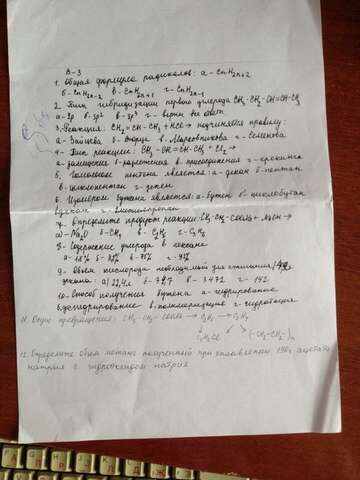 В-3
1. Общая формула радикалов: а- CnH2n+2
б- CnH2n-2 в- CnH2n+1 г- CnH2n-1
2. Типы гибридизации первого углерода CH3-CH2-CH=CH-CH3
а- Sp б- Sp² в- Sp³ г- верны
3. Реакция: CH2=CH-CH3 + HCl → подчиняется правилу:
а- Зайцева б- Вюрца в- Марковникова г- Семенова
4- Тип реакции: CH3-CH=CH-CH3 + Cl2 →
а- замещения б- разложения в- присоединения г- крекинга
5. Гомологом пентена является: а- декан б- пентан
в- циклопентан г- гептен
6. Изомером бутена является: а- бутен б- циклобутан
г- метилпропан
7. Определите продукт реакции: CH3-CH2-COONa + NaOH →
а- Na2O б- CH4 в- C2H6 г- C3H8
8- Содержание углерода в гексане
а- 18% б- 83% в- 75% г- 92%
9- Объем кислорода необходимый для сжигания
этана: а) 22,4л б- 78,7 в- 3472 г- 142
10- Способ получения бутена а- гидрирование
б- дегидрирование в- полимеризация г- гидратация
11. превращения: CH3-CH2-COONa → C2H6 → C2H4
C2H5Cl (-CH2-CH2-)n
12. Определите объем метана полученный при сплавлении ацетата
натрия с гидроксидом натрия